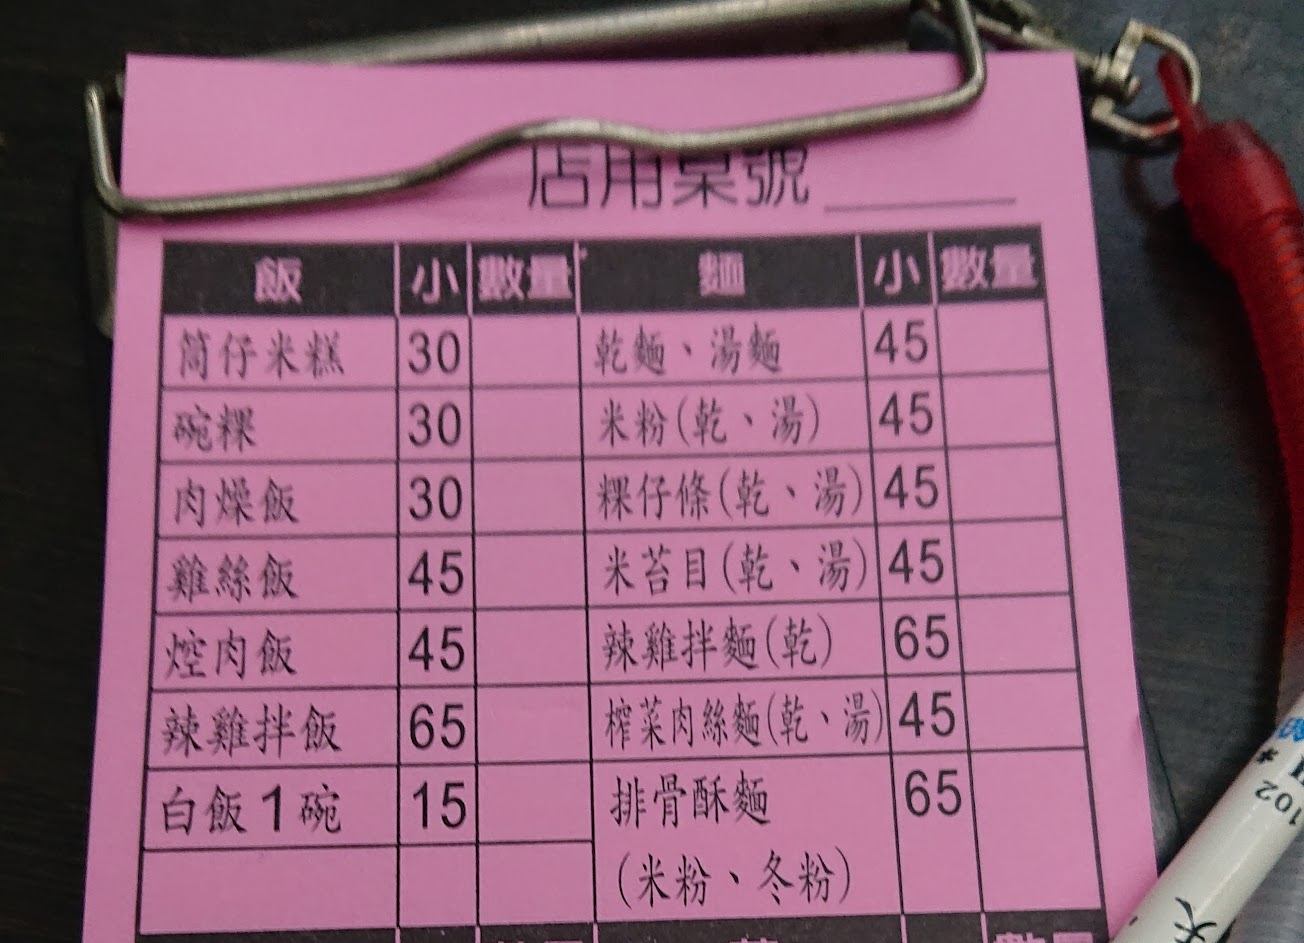 店用桌號
飯 小 數量 麵 小 數量
筒仔米糕 30 乾麵、湯麵 45
碗粿 30 米粉(乾、湯) 45
肉燥飯 30 粿仔條(乾、湯) 45
雞絲飯 45 米苔目(乾、湯) 45
焢肉飯 45 辣雞拌麵(乾) 65
辣雞拌飯 65 榨菜肉絲麵(乾、湯) 45
白飯1碗 15 排骨酥麵 65
(米粉、冬粉)
數量 數量
102
天